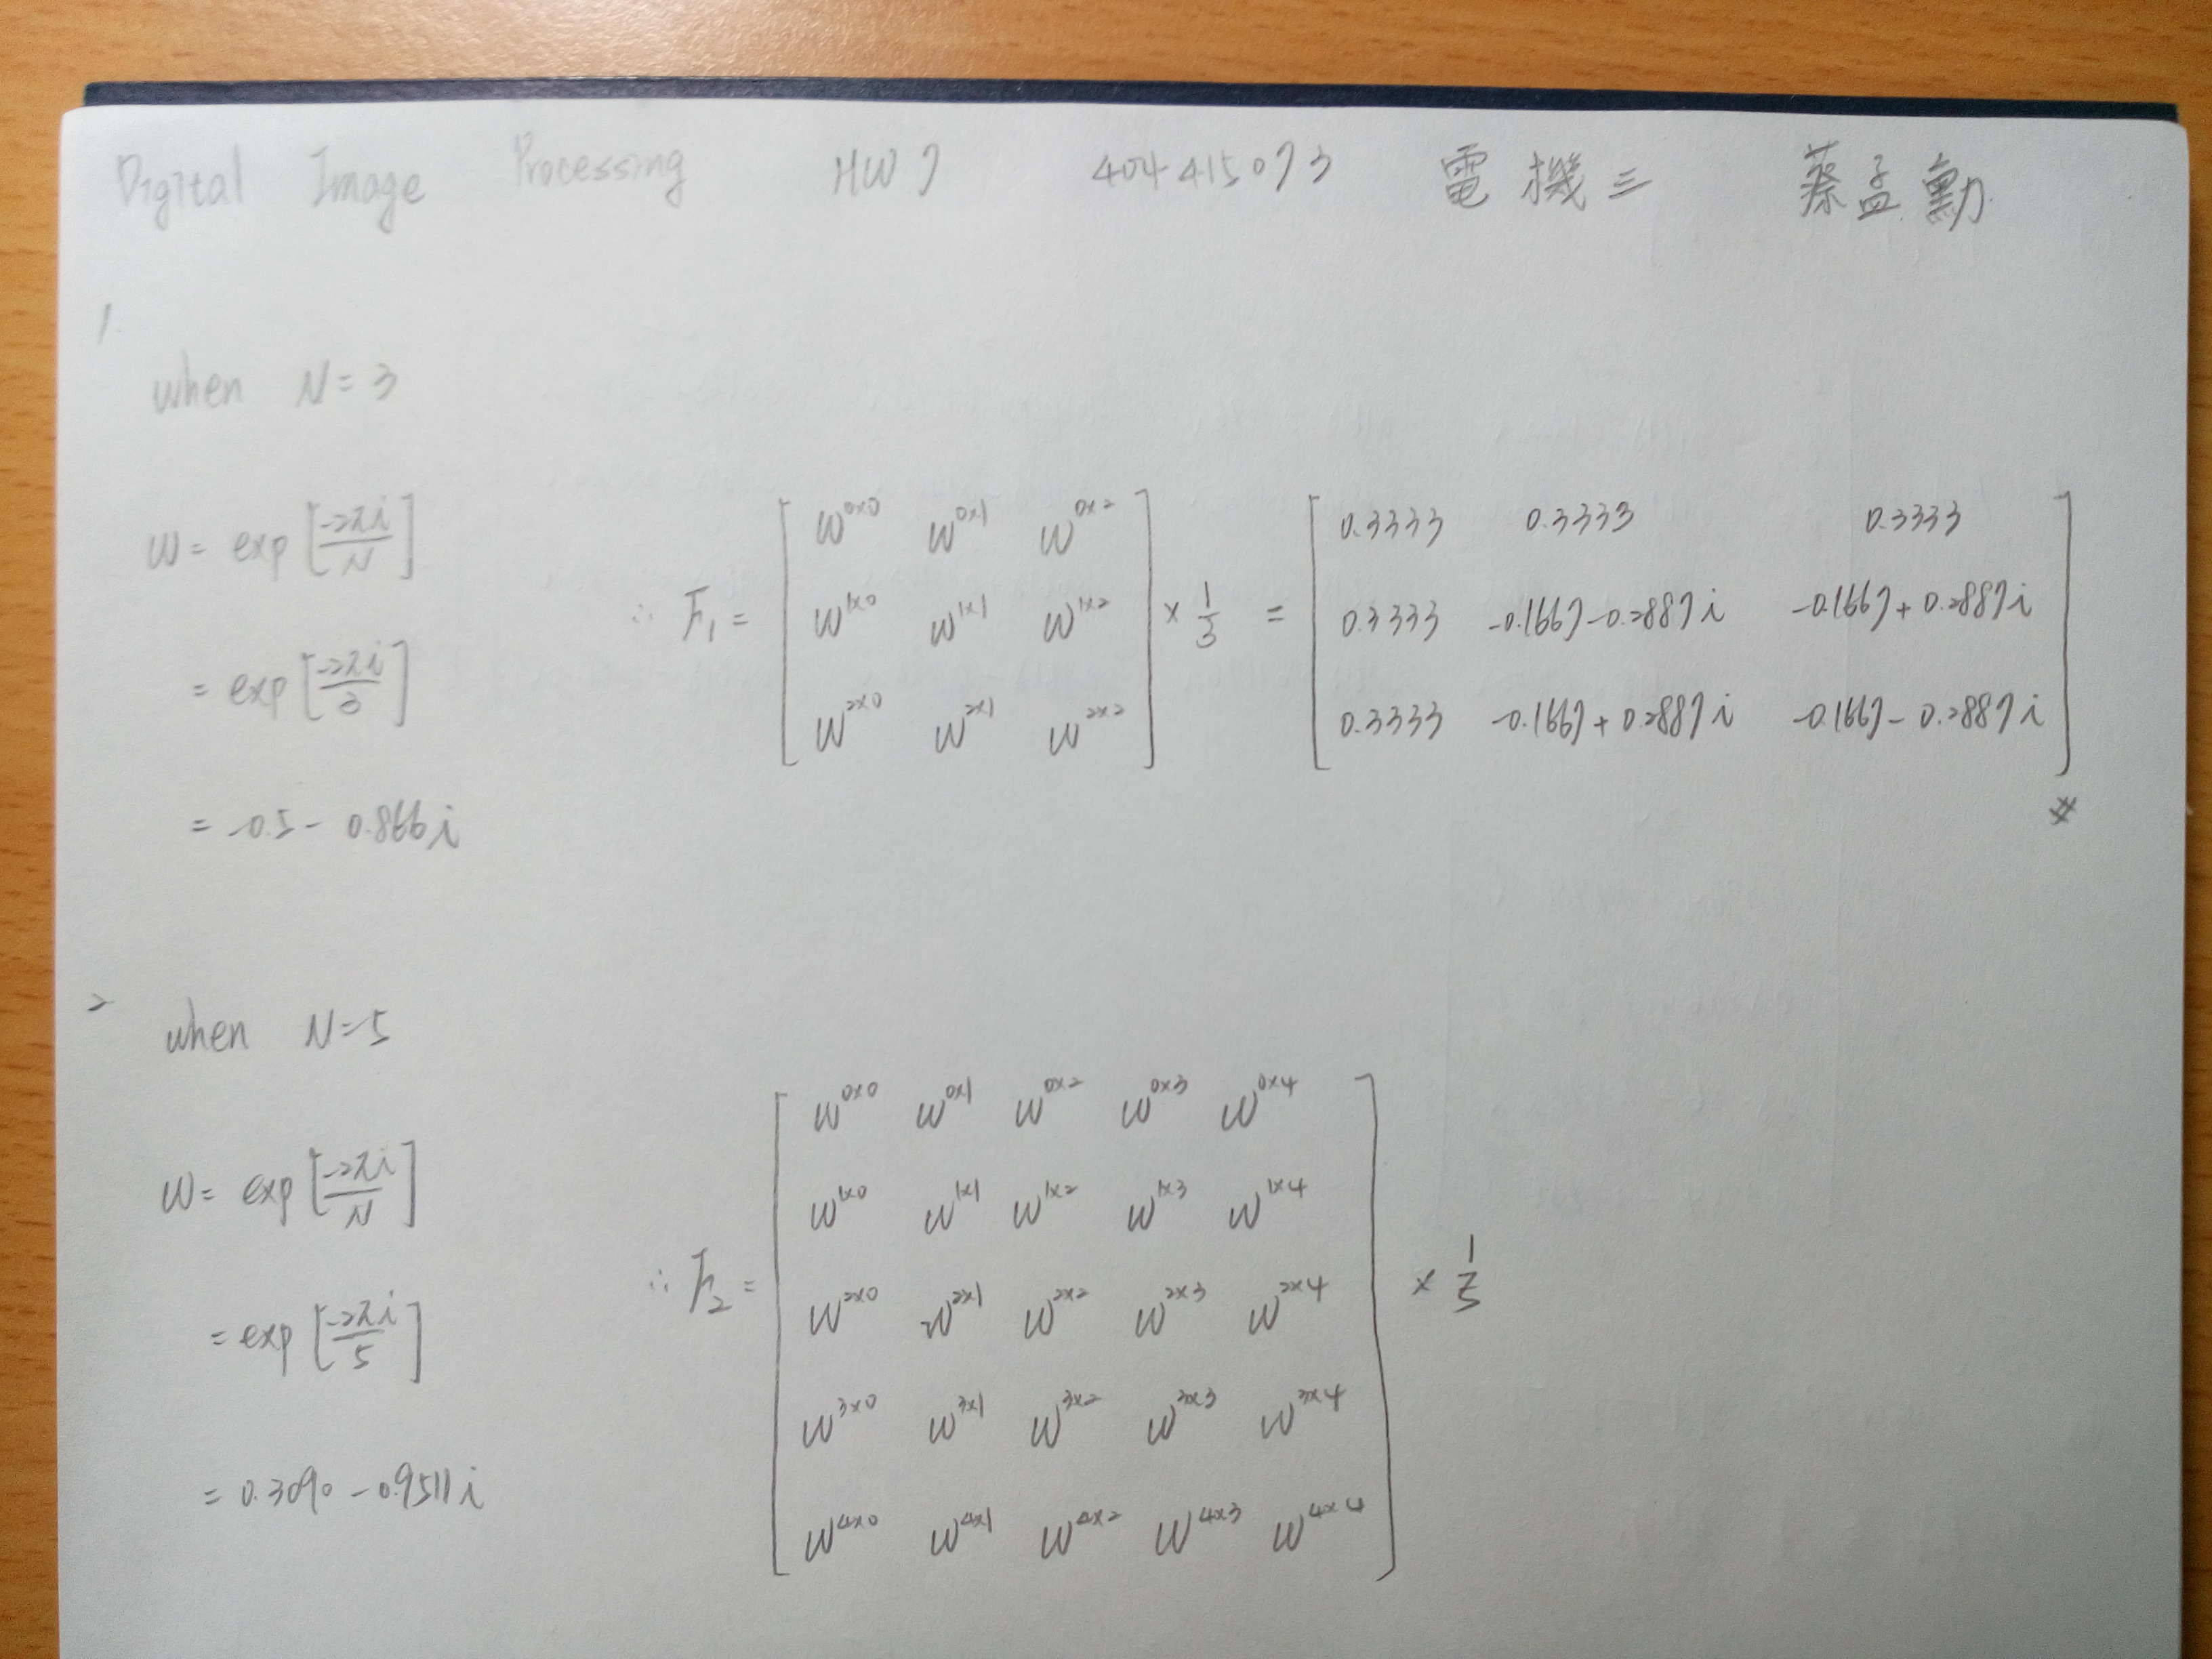 Digital Image Processing HW7 404415073 電機三 蔡孟勳
1.
when N=3
W = exp[-2πi/N]
= exp[-2πi/3]
= -0.5 - 0.866i
∴ F₁ = [ W^0x0 W^0x1 W^0x2
W^1x0 W^1x1 W^1x2
W^2x0 W^2x1 W^2x2 ] × 1/3 =
[ 0.3333 0.3333 0.3333
0.3333 -0.1667-0.2887i -0.1667+0.2887i
0.3333 -0.1667+0.2887i -0.1667-0.2887i ]
#
2
when N=5
W = exp[-2πi/N]
= exp[-2πi/5]
= 0.3090 - 0.9511i
∴ F₂ = [ W^0x0 W^0x1 W^0x2 W^0x3 W^0x4
W^1x0 W^1x1 W^1x2 W^1x3 W^1x4
W^2x0 W^2x1 W^2x2 W^2x3 W^2x4
W^3x0 W^3x1 W^3x2 W^3x3 W^3x4
W^4x0 W^4x1 W^4x2 W^4x3 W^4x4 ] × 1/5